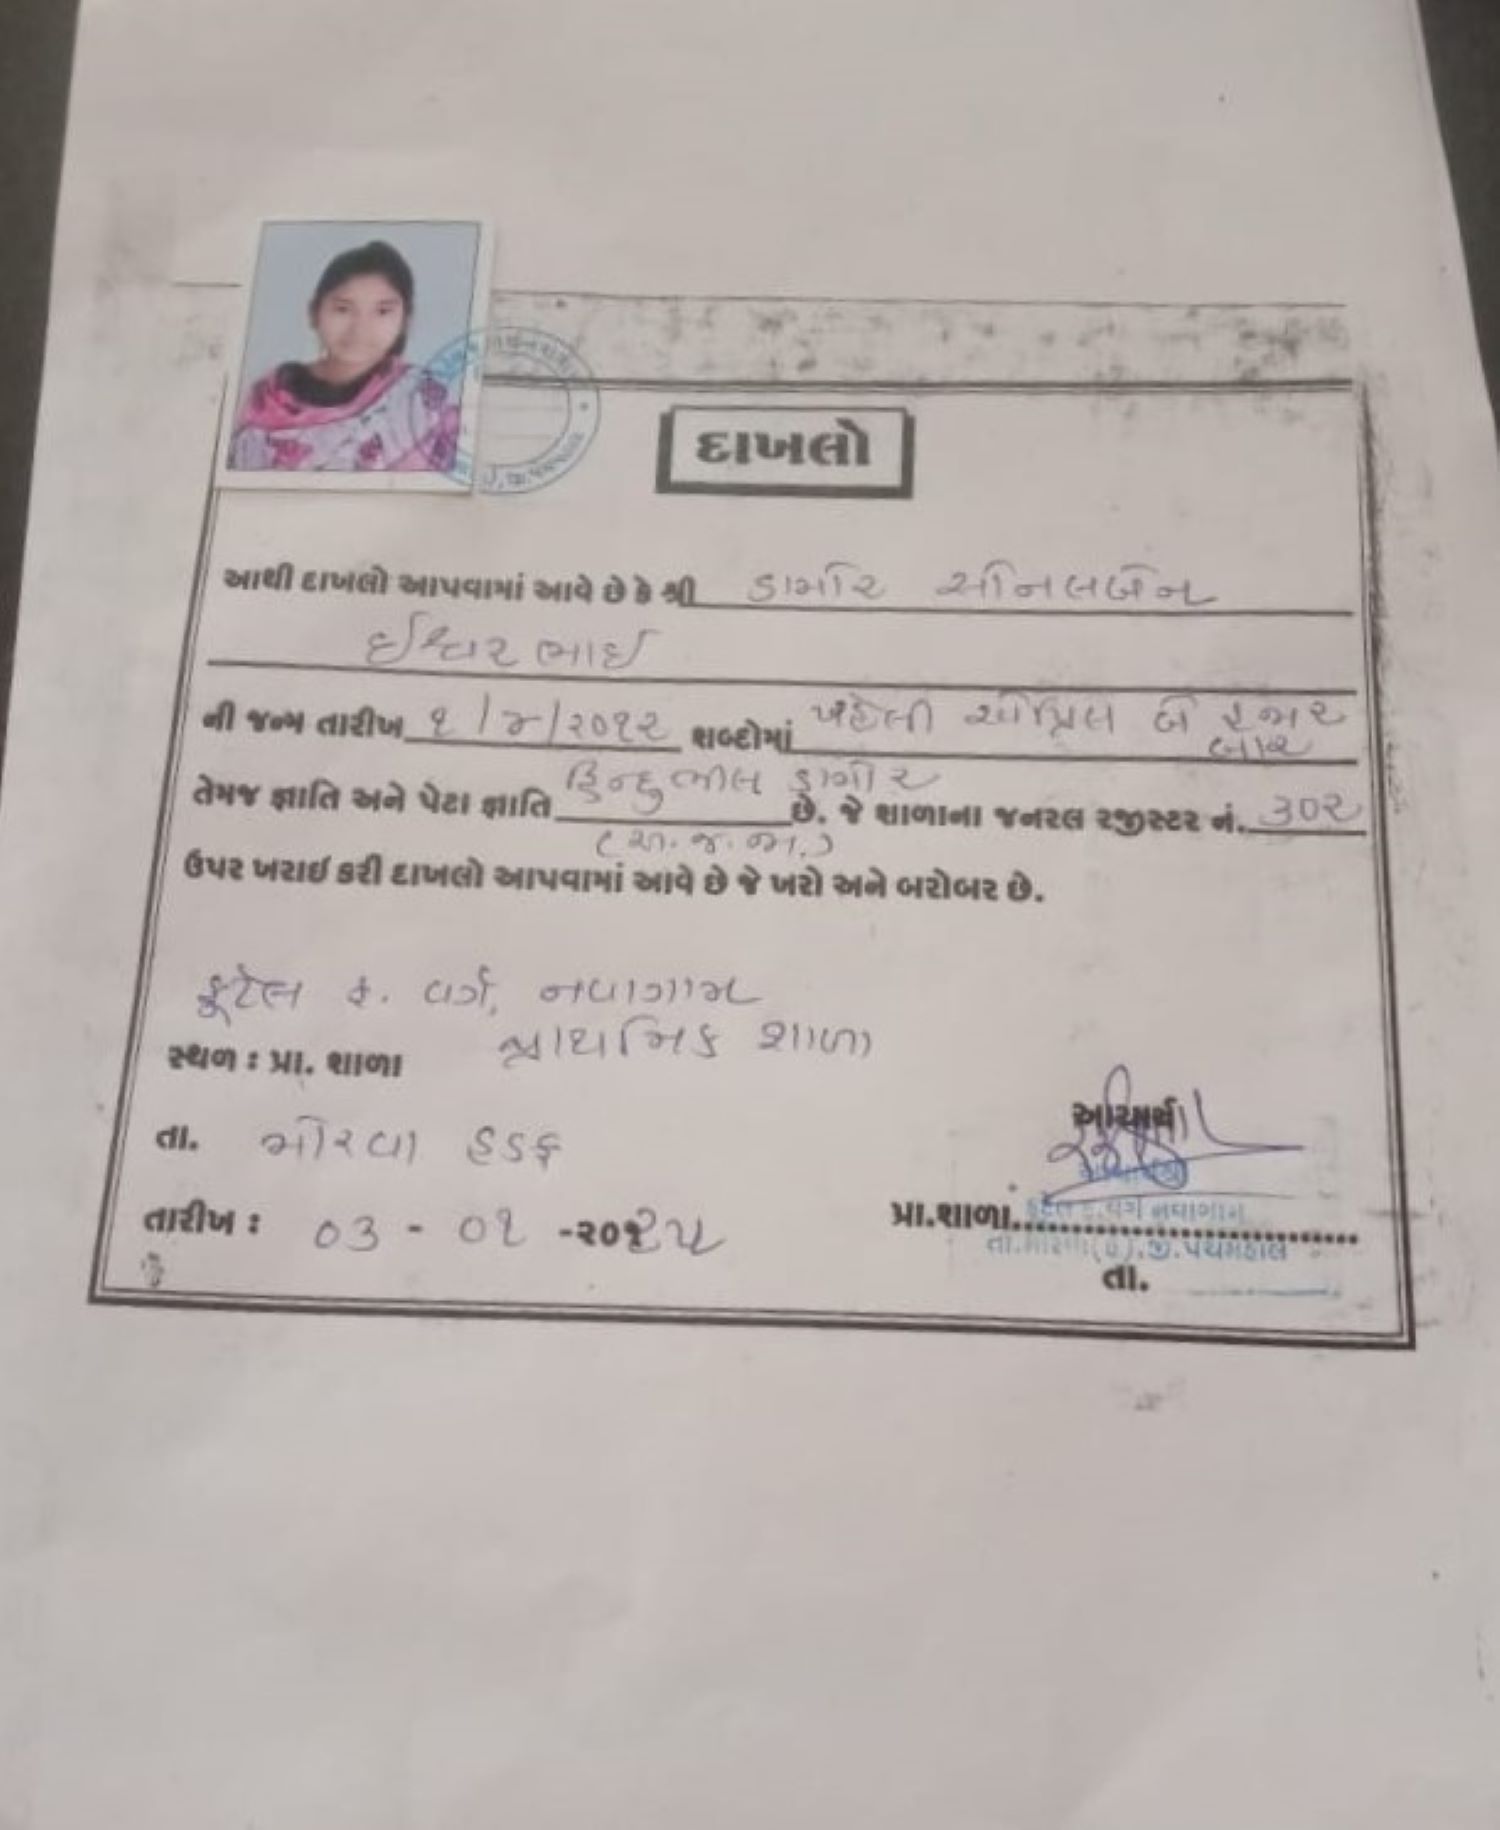 દાખલો
આથી દાખલો આપવામાં આવે છે કે શ્રી ડામોર સોનલબેન
ઈશ્વરભાઈ
ની જન્મ તારીખ ૧/૪/૨૦૧૨ શબ્દોમાં પહેલી એપ્રિલ બે હજાર
બાર
તેમજ જ્ઞાતિ અને પેટા જ્ઞાતિ હિન્દુ ભીલ ડામોર છે. જે શાળાના જનરલ રજીસ્ટર નં. ૩૦૨
(અ.જ.જા.)
ઉપર ખરાઈ કરી દાખલો આપવામાં આવે છે જે ખરો અને બરોબર છે.
કુટેલ ફ. વર્ગ, નવાગામ
પ્રાથમિક શાળા
સ્થળ : પ્રા. શાળા
તા. મોરવા હડફ
આચાર્ય
તારીખ : ૦૩ - ૦૧ -૨૦૨૫
પ્રા.શાળા વર્ગ નવાગામ
તા.મોરવા(હ).જી.પંચમહાલ
તા.